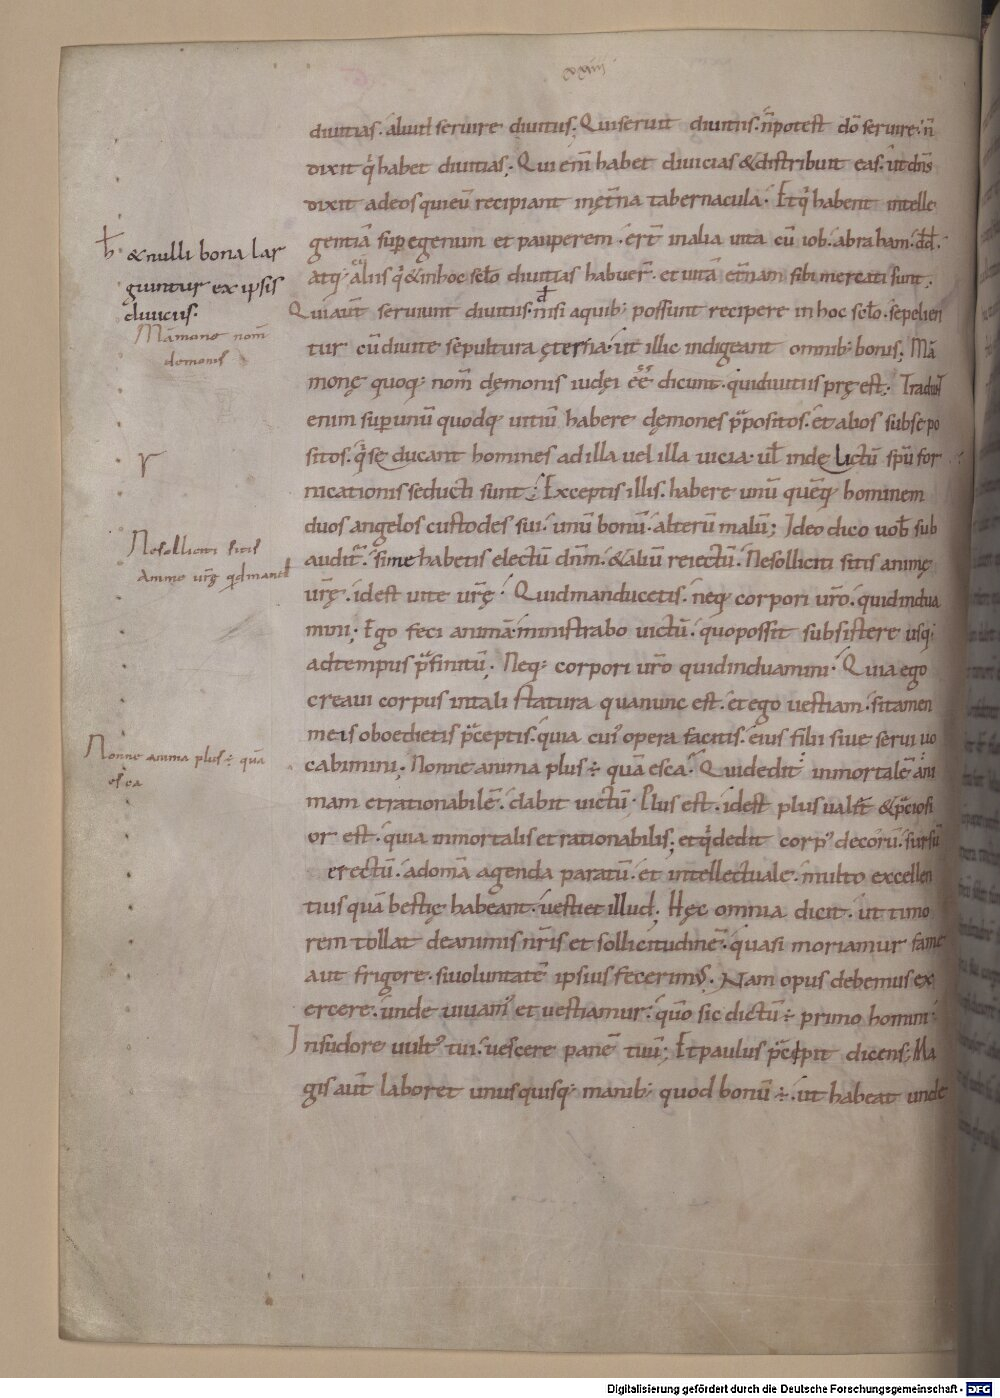 xxiiii
diuitias. aliud seruire diuitiis; Qui seruit diuitiis. n̄ potest dō seruire. n̄
dixit q̇ habet diuitias; Qui enī habet diuicias & distribuit eas. ut dn̄s
dixit ad eos qui eū recipiant in ęt̄na tabernacula. Et q̇ habent intelle
gentiā sup egenum et pauperem. ert̄ in alia uita cū iob. abraham. dd̄.
atq; aliis q̇ & in hoc sc̄lo diuitias habuer̄. et uitā et̄nam sibi mercati sunt.
Qui aut̄ seruiunt diuitiis. nisi a quib; possunt recipere in hoc sc̄lo. sepelien
tur cū diuite sepultura ęterna. ut illic indigeant omnib; bonis; Mā
monę quoq; nom̄ dęmonis iudęi ēē dicunt. qui diuitiis pręest; Tradunt
enim sup unū quodq; uitiū habere dęmones p̄positos. et alios subsepo
sitos. q̇ seducant homines ad illa uel illa uicia. ul̄ inde dictū sp̄u for
nicationis seducti sunt; Exceptis illis. habere unū quēq; hominem
duos angelos custodes sui. unū bonū. alterū malū; Ideo dico uob̄ sub
audit̄. si me habetis electū dn̄m. & aliū reiectū. Ne solliciti sitis animę
ur̄ę. id est uite ur̄ę. Quid manducetis. neq; corpori ur̄o. quid indua
mini; Ego feci animā. ministrabo uictū. quo possit subsistere usq;
ad tempus p̄finitū; Neq; corpori ur̄o quid induamini. Quia ego
creaui corpus in tali statura qua nunc est. et ego uestiam. si tamen
meis oboedietis p̄ceptis. quia cui' opera facitis. eius filii siue serui uo
cabimini; Nonne anima plus ÷ quā esca. Qui dedit inmortalē ani
mam et rationabilē. dabit uictū. Plus est. id est plus ualet & p̄ciosi
or est. quia inmortalis et rationabilis; et q̇ dedit corp' decorū. sursū
erectū. ad omīa agenda paratū. et intellectuale. multo excellen
tius quā bestię habeant. uestiet illud; Hęc omnia dicit. ut timo
rem tollat de animis nr̄is et sollicitudinē. quasi moriamur fame
aut frigore. si uoluntatē ipsius fecerimus. Nam opus debemus ex
ercere. unde uiuam' et uestiamur. quō sic dictū ÷ primo homini.
In sudore uult' tui. uescere pane tuū; Et paulus p̄cepit dicens; Ma
gis aut̄ laboret unusquisq; manib; quod bonū ÷. ut habeat unde
h̄ & nulli bona lar
guntur ex ipsis
diuiciis.
Māmone nom̄
demonis
r
Ne solliciti sitis
anime ur̄ę qd mand
Nonne anima plus ÷ quā
esca
Digitalisierung gefördert durch die Deutsche Forschungsgemeinschaft - DFG